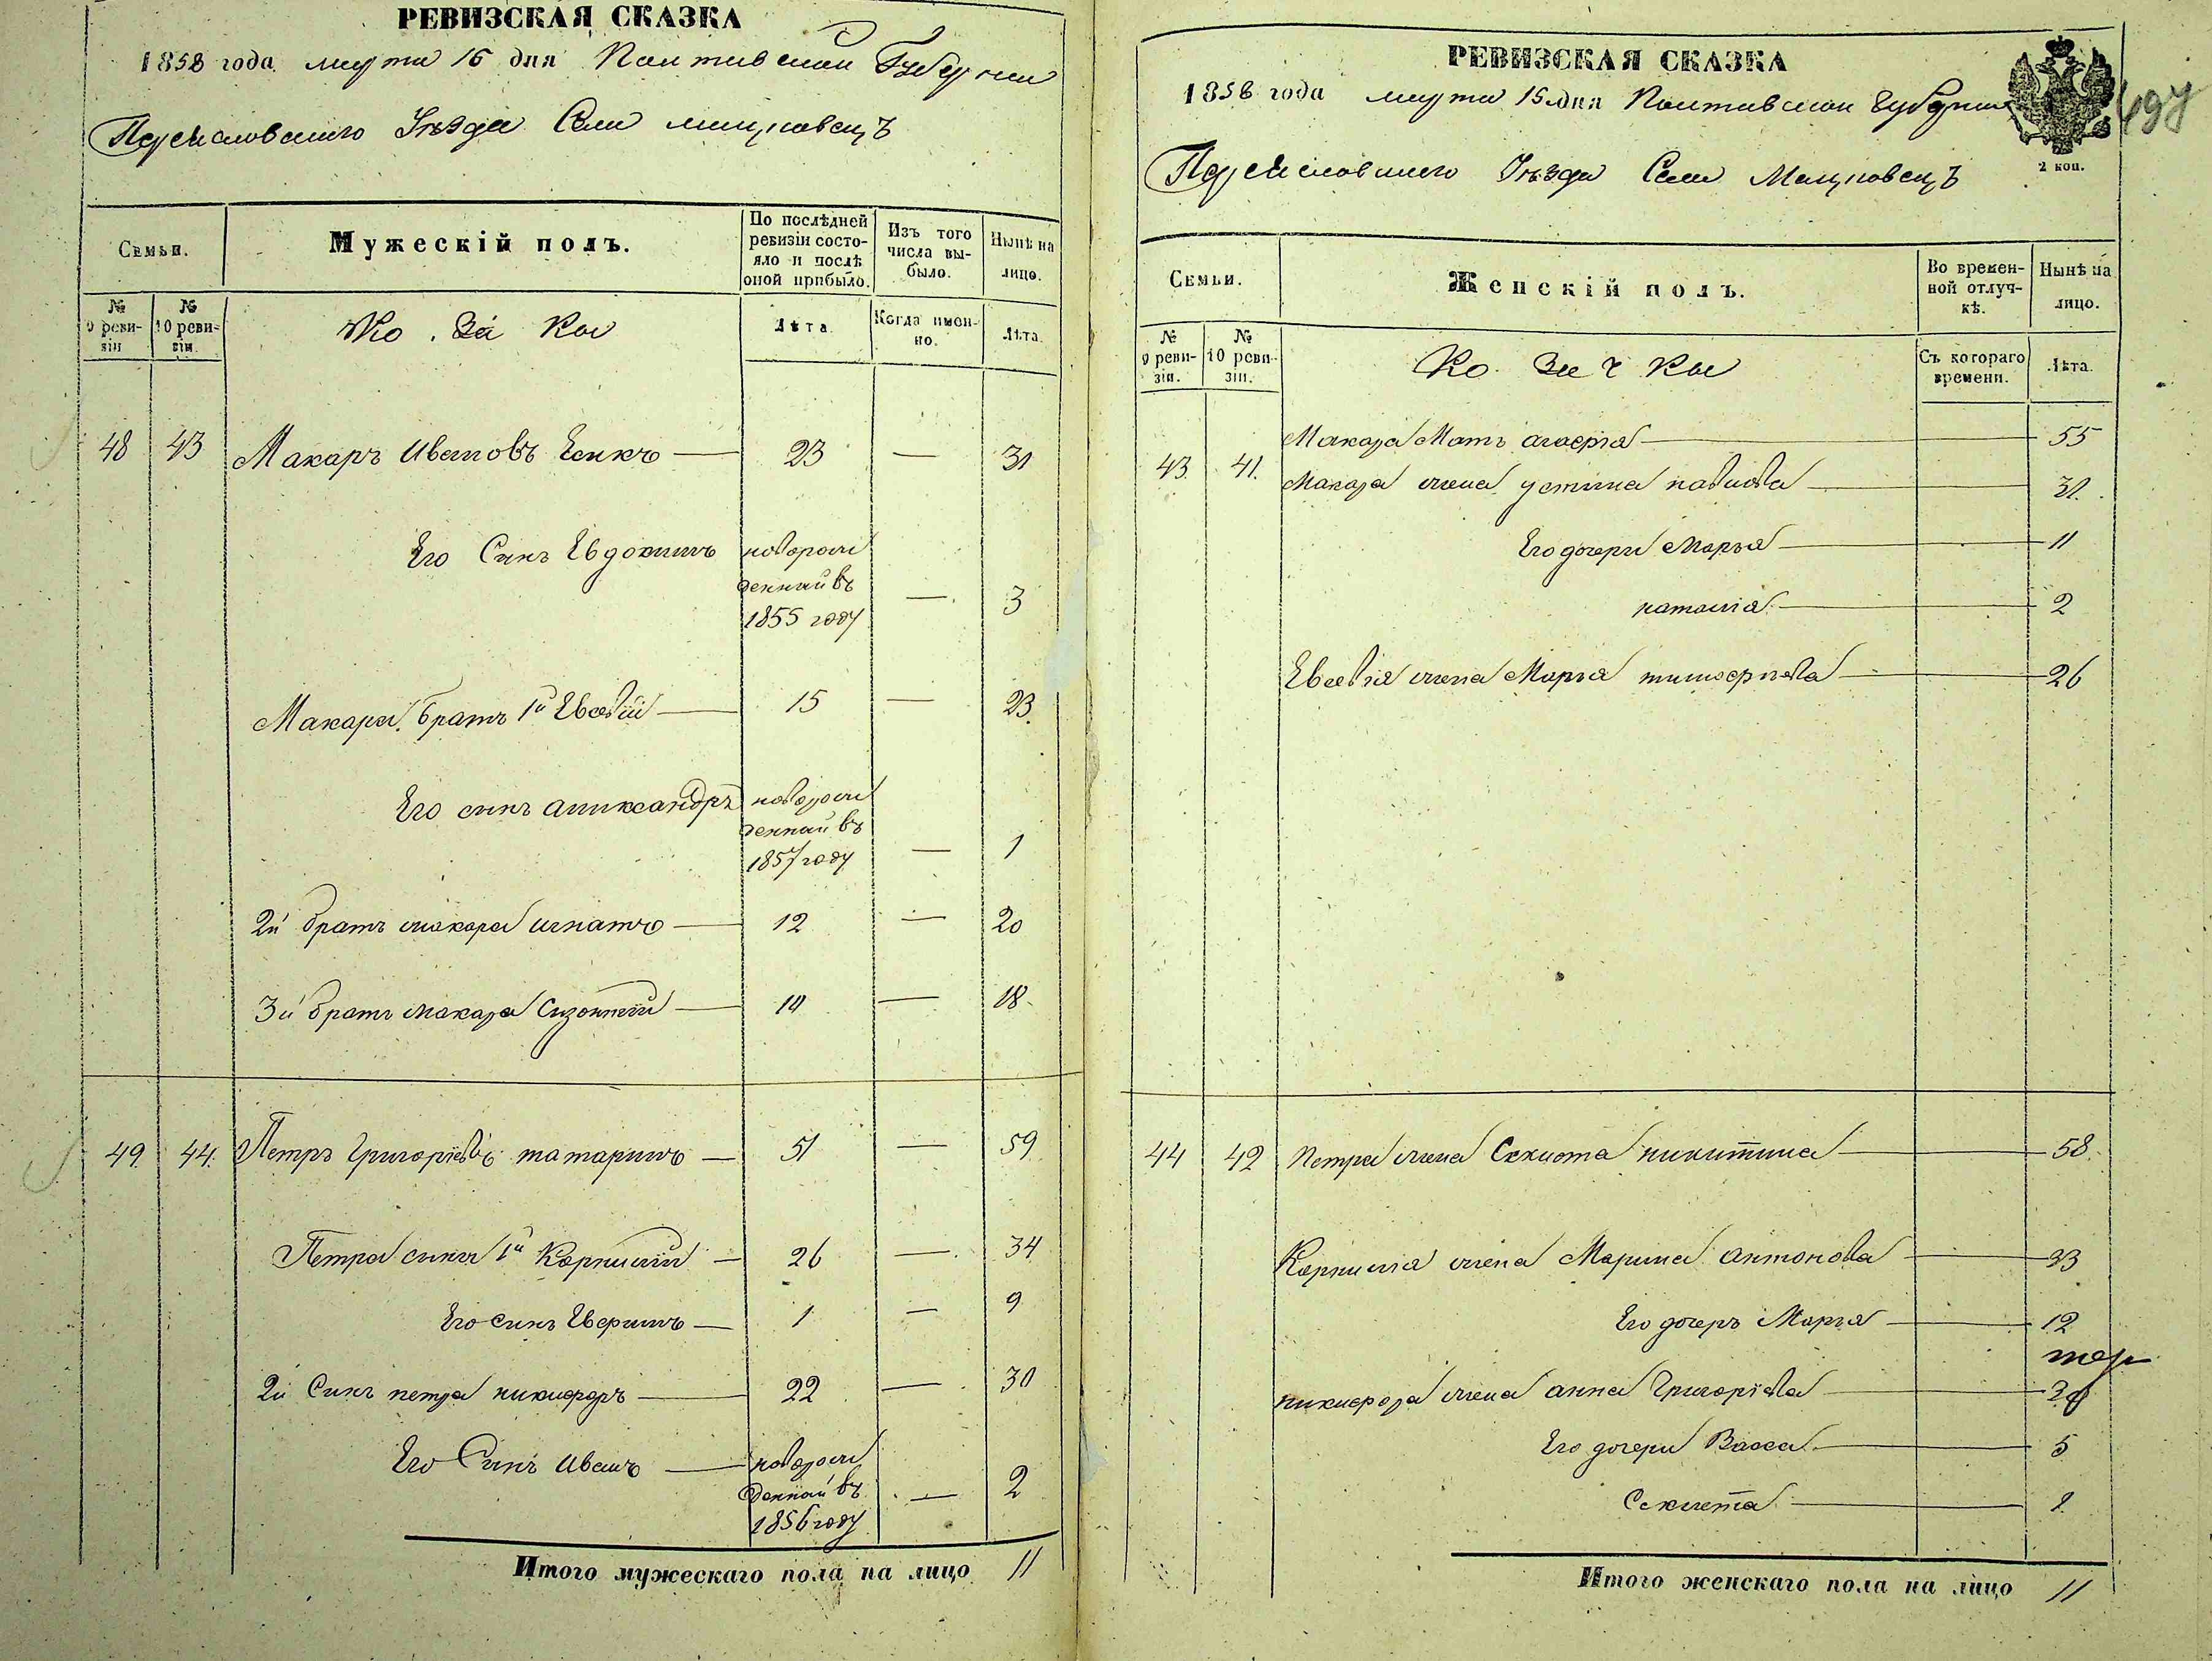 РЕВИЗСКАЯ СКАЗКА
1858 года марта 15 дня Полтавской Губернии
Переясловского Уѣзда Села
Семьи.
Мужескій полъ.
По послѣдней ревизіи состояло и послѣ оной прибыло.
Изъ того числа выбыло.
Нынѣ на лицо.
№ 9 ревизіи
№ 10 ревизіи.
Ко за ки
Лѣта.
Когда именно.
Лѣта.
48 43 Макаръ Ивановъ — 23 — 31
Его Синъ Евдокимъ новорож
денный въ
1855 году — 3
Макара братъ 1й Евсевій — 15 — 23.
Его синъ Аликсандръ новорож
денный въ
1857 году — 1
2й братъ макара игнатъ — 12 — 20
3й братъ макара Сизонтій — 10 — 18.
49. 44. Петръ Григоріевъ татаринъ — 51 — 59
Петра синъ 1й Корнилій — 26 — 34
Его синъ Ефимъ — 1 — 9
2й Синъ петра никифоръ — 22 — 30
Его Синъ Иванъ — новорож
денный въ
1856 году — 2
Итого мужескаго пола на лицо 11
РЕВИЗСКАЯ СКАЗКА
1858 года марта 15 дня Полтавской Губернии
497
2 коп.
Переясловского Уѣзда Села
Семьи.
Женскій полъ.
Во временной отлучкѣ.
Нынѣ на лицо.
№ 9 ревизіи.
№ 10 ревизіи.
Ко за ч ки
Съ котораго времени.
Лѣта.
43. 41. Макара Мать агафія — 55
Макара жена устина павлова — 31.
Его дочери Марья — 11
наталія — 2
Евсевія жена Марья тимофѣева — 26
44 42 Петра жена Секлета никитина — 58.
Корнилія жена Марина антонова — 33
Его дочеръ Марья — 12
никифора жена анна Григоріева — 30
Его дочери Васса — 5
Секлета — 1
Итого женскаго пола на лицо 11